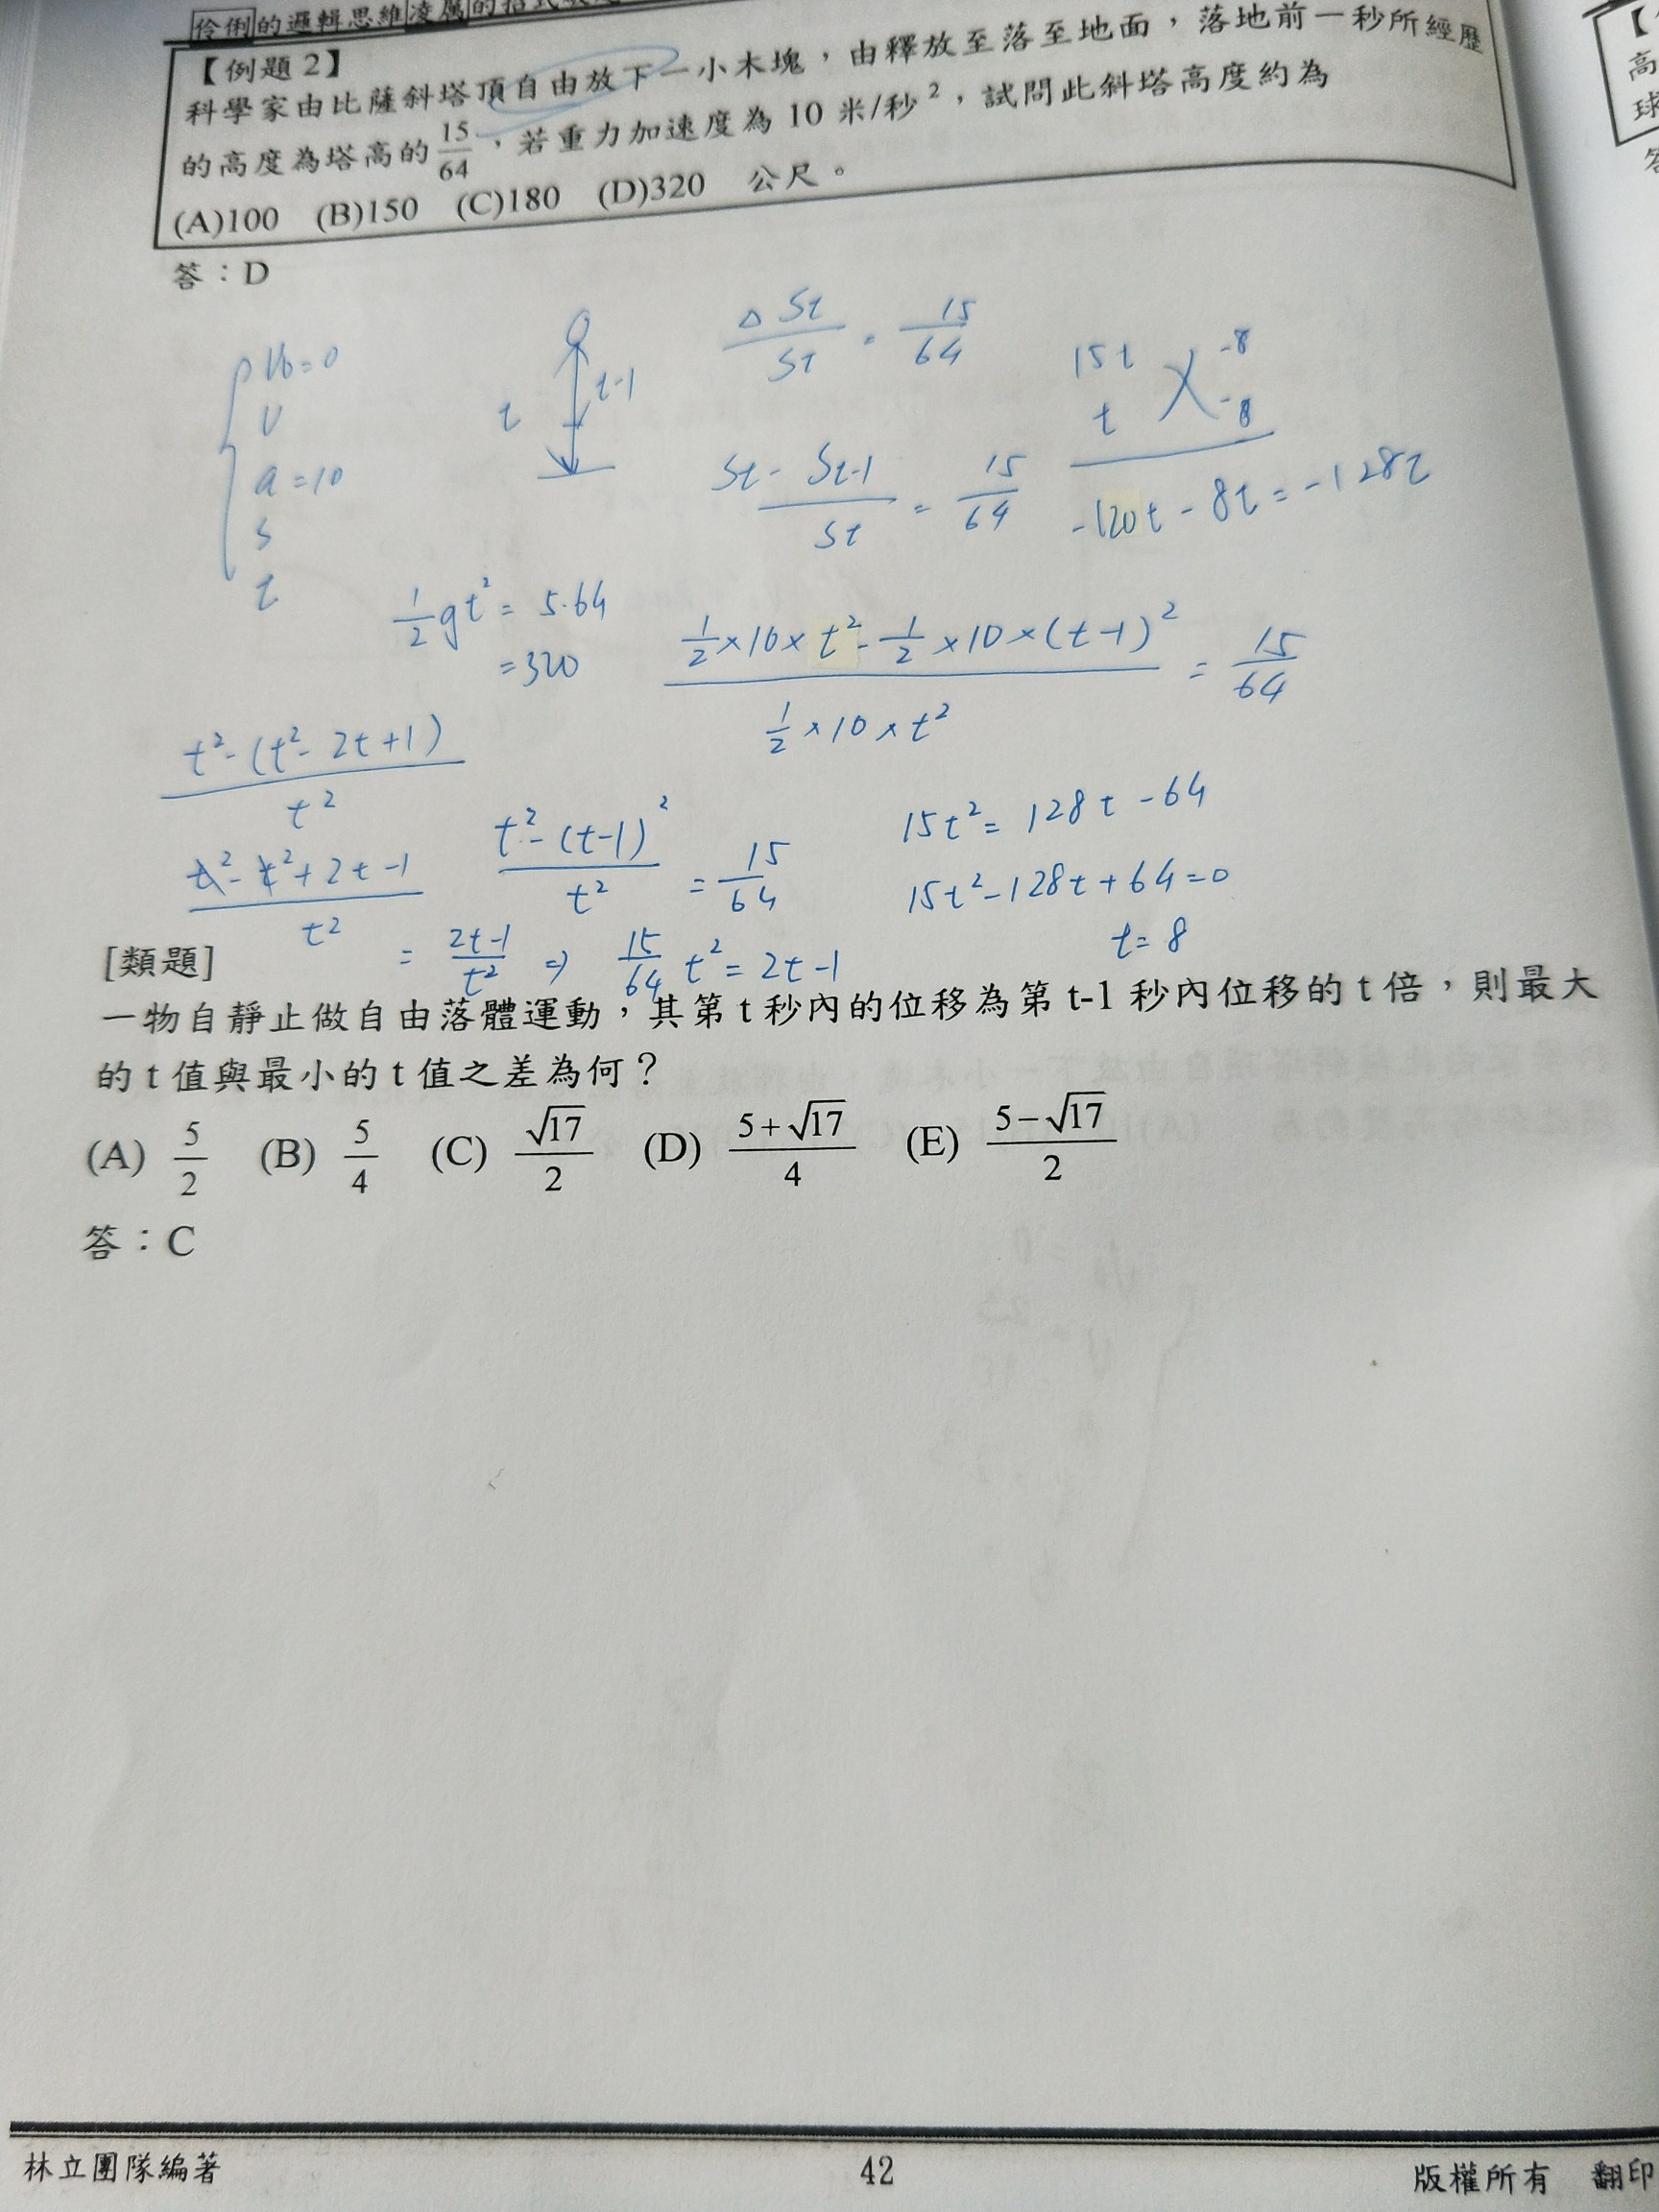 伶俐的邏輯思維凌厲的招式
【例題 2】
科學家由比薩斜塔頂自由放下一小木塊，由釋放至落至地面，落地前一秒所經歷
的高度為塔高的 15/64，若重力加速度為 10 米/秒²，試問此斜塔高度約為
(A)100 (B)150 (C)180 (D)320 公尺。
答：D
V0=0
V
a=10
S
t
t t-1
ΔSt/St = 15/64
St - St-1/St = 15/64
15t -8
t -8
-120t - 8t = -128t
1/2 gt² = 5·64
=320
1/2×10×t² - 1/2×10×(t-1)² / 1/2×10×t² = 15/64
t²-(t²-2t+1)/t²
t²-t²+2t-1/t²
= 2t-1/t² ⇒ 15/64 t² = 2t-1
t²-(t-1)²/t² = 15/64
15t² = 128t - 64
15t² - 128t + 64 = 0
t = 8
[類題]
一物自靜止做自由落體運動，其第 t 秒內的位移為第 t-1 秒內位移的 t 倍，則最大
的 t 值與最小的 t 值之差為何？
(A) 5/2 (B) 5/4 (C) √17/2 (D) 5+√17/4 (E) 5-√17/2
答：C
林立團隊編著 42 版權所有 翻印
【
高
球